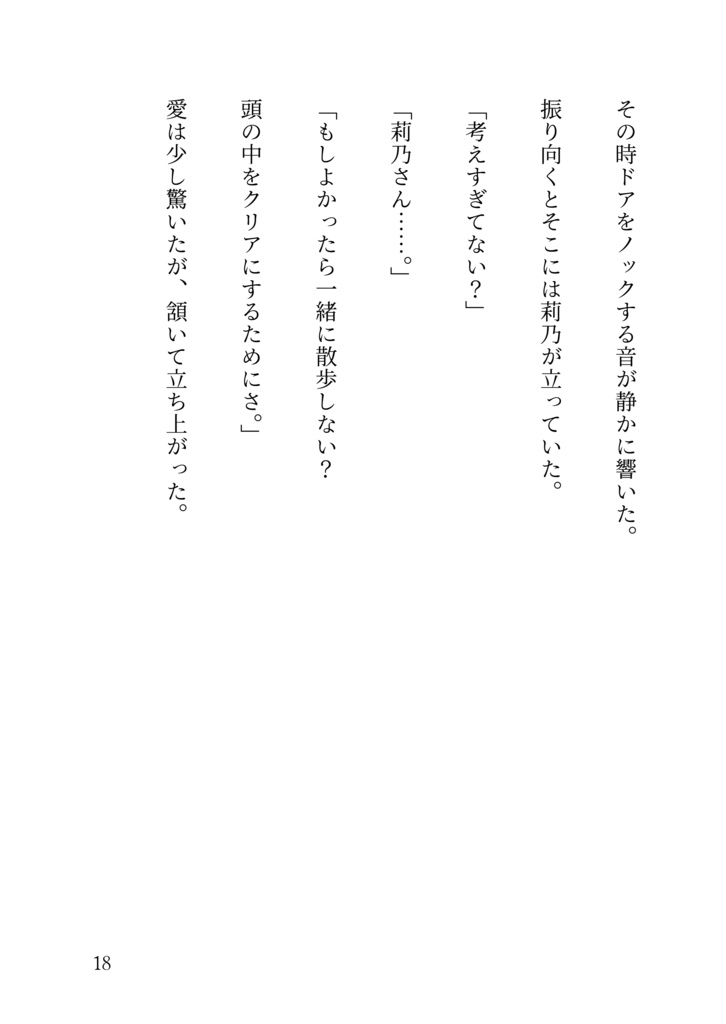 その時ドアをノックする音が静かに響いた。
振り向くとそこには莉乃が立っていた。
「考えすぎてない？」
「莉乃さん……。」
「もしよかったら一緒に散歩しない？
頭の中をクリアにするためにさ。」
愛は少し驚いたが、頷いて立ち上がった。
18